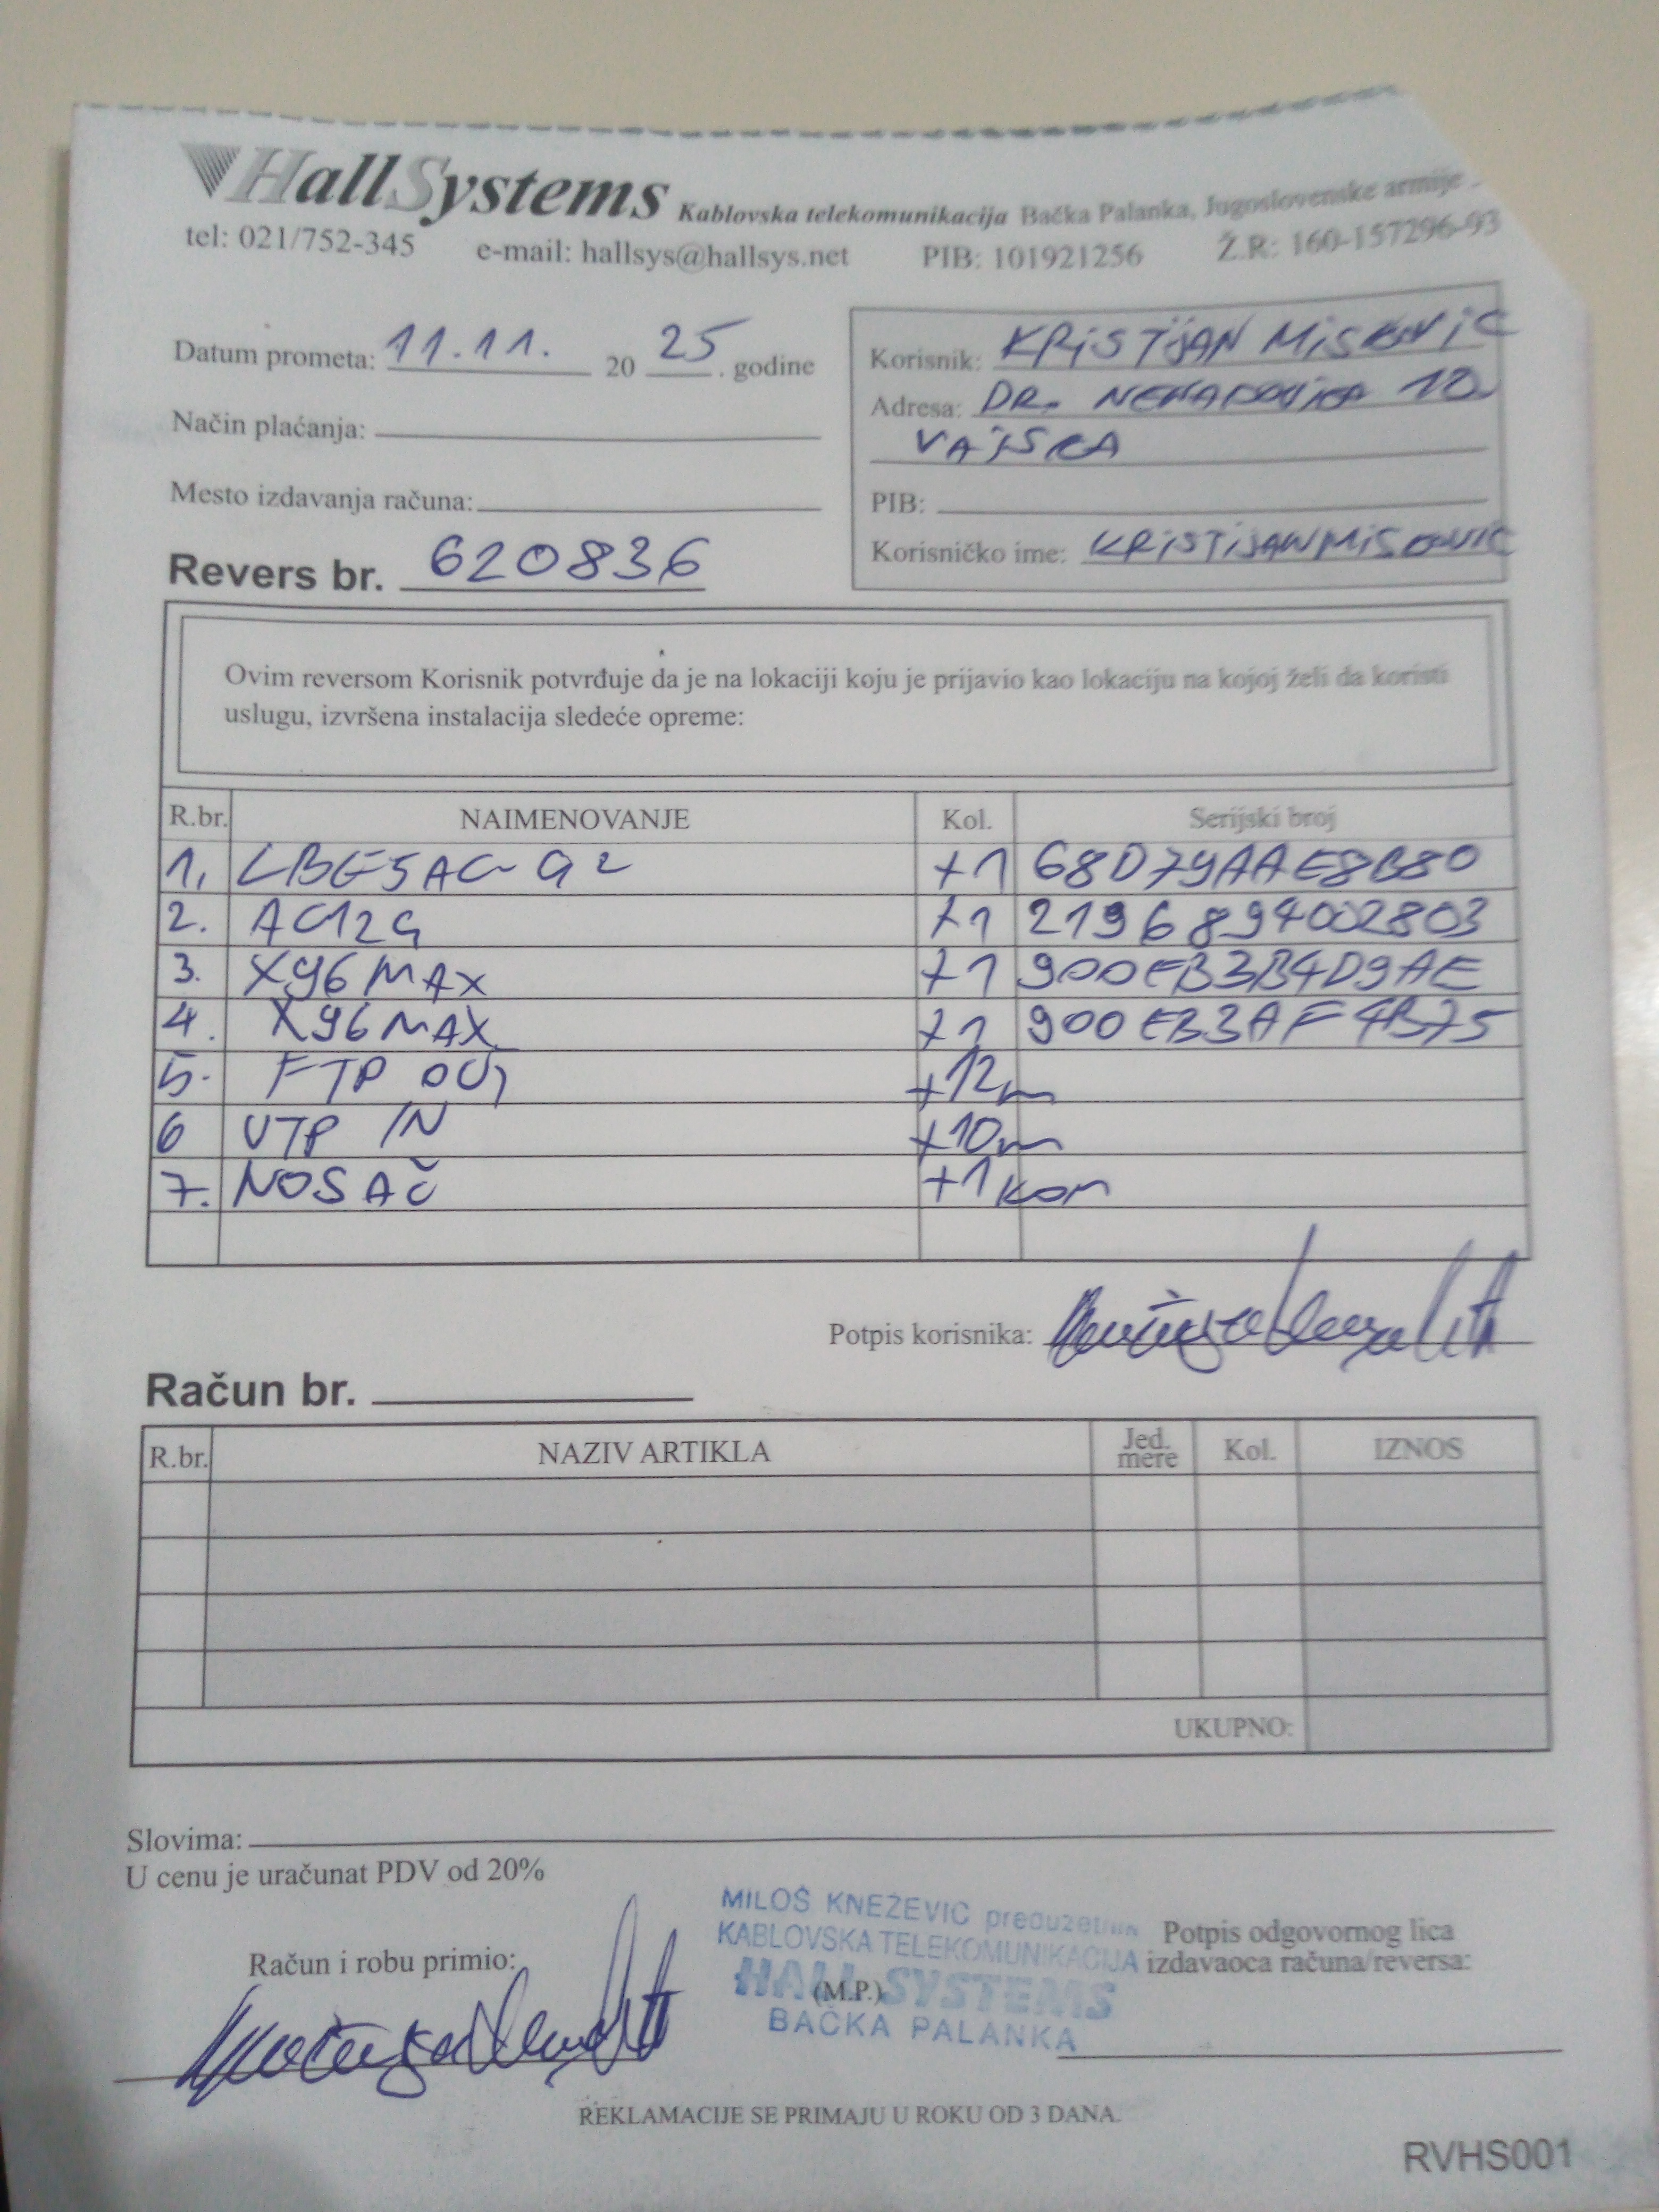 HallSystems Kablovska telekomunikacija Bačka Palanka, Jugoslovenske armije
tel: 021/752-345 e-mail: hallsys@hallsys.net PIB: 101921256 Ž.R: 160-157296-93
Datum prometa: 11.11. 20 25. godine
Način plaćanja:
Mesto izdavanja računa:
Revers br. 620836
Korisnik: KRISTIJAN MISKOVIC
Adresa: DR. 10.
VAJSKA
PIB:
Korisničko ime: KRISTIJANMISKOVIC
Ovim reversom Korisnik potvrđuje da je na lokaciji koju je prijavio kao lokaciju na kojoj želi da koristi
uslugu, izvršena instalacija sledeće opreme:
R.br. NAIMENOVANJE Kol. Serijski broj
1. LBE5AC-G2 +1 68D79AAE8B80
2. AC12G +1 2196894002803
3. X96MAX +1 900EB3B4D9AE
4. X96MAX +1 900EB3AF4B75
5. FTP OUT +12m
6 UTP IN +10m
7. NOSAČ +1 kom
Potpis korisnika:
Račun br.
R.br. NAZIV ARTIKLA Jed. mere Kol. IZNOS
UKUPNO:
Slovima:
U cenu je uračunat PDV od 20%
Račun i robu primio:
MILOŠ KNEŽEVIĆ preduzetnik
KABLOVSKA TELEKOMUNIKACIJA
HALL SYSTEMS
(M.P.)
BAČKA PALANKA
Potpis odgovornog lica
izdavaoca računa/reversa:
REKLAMACIJE SE PRIMAJU U ROKU OD 3 DANA.
RVHS001